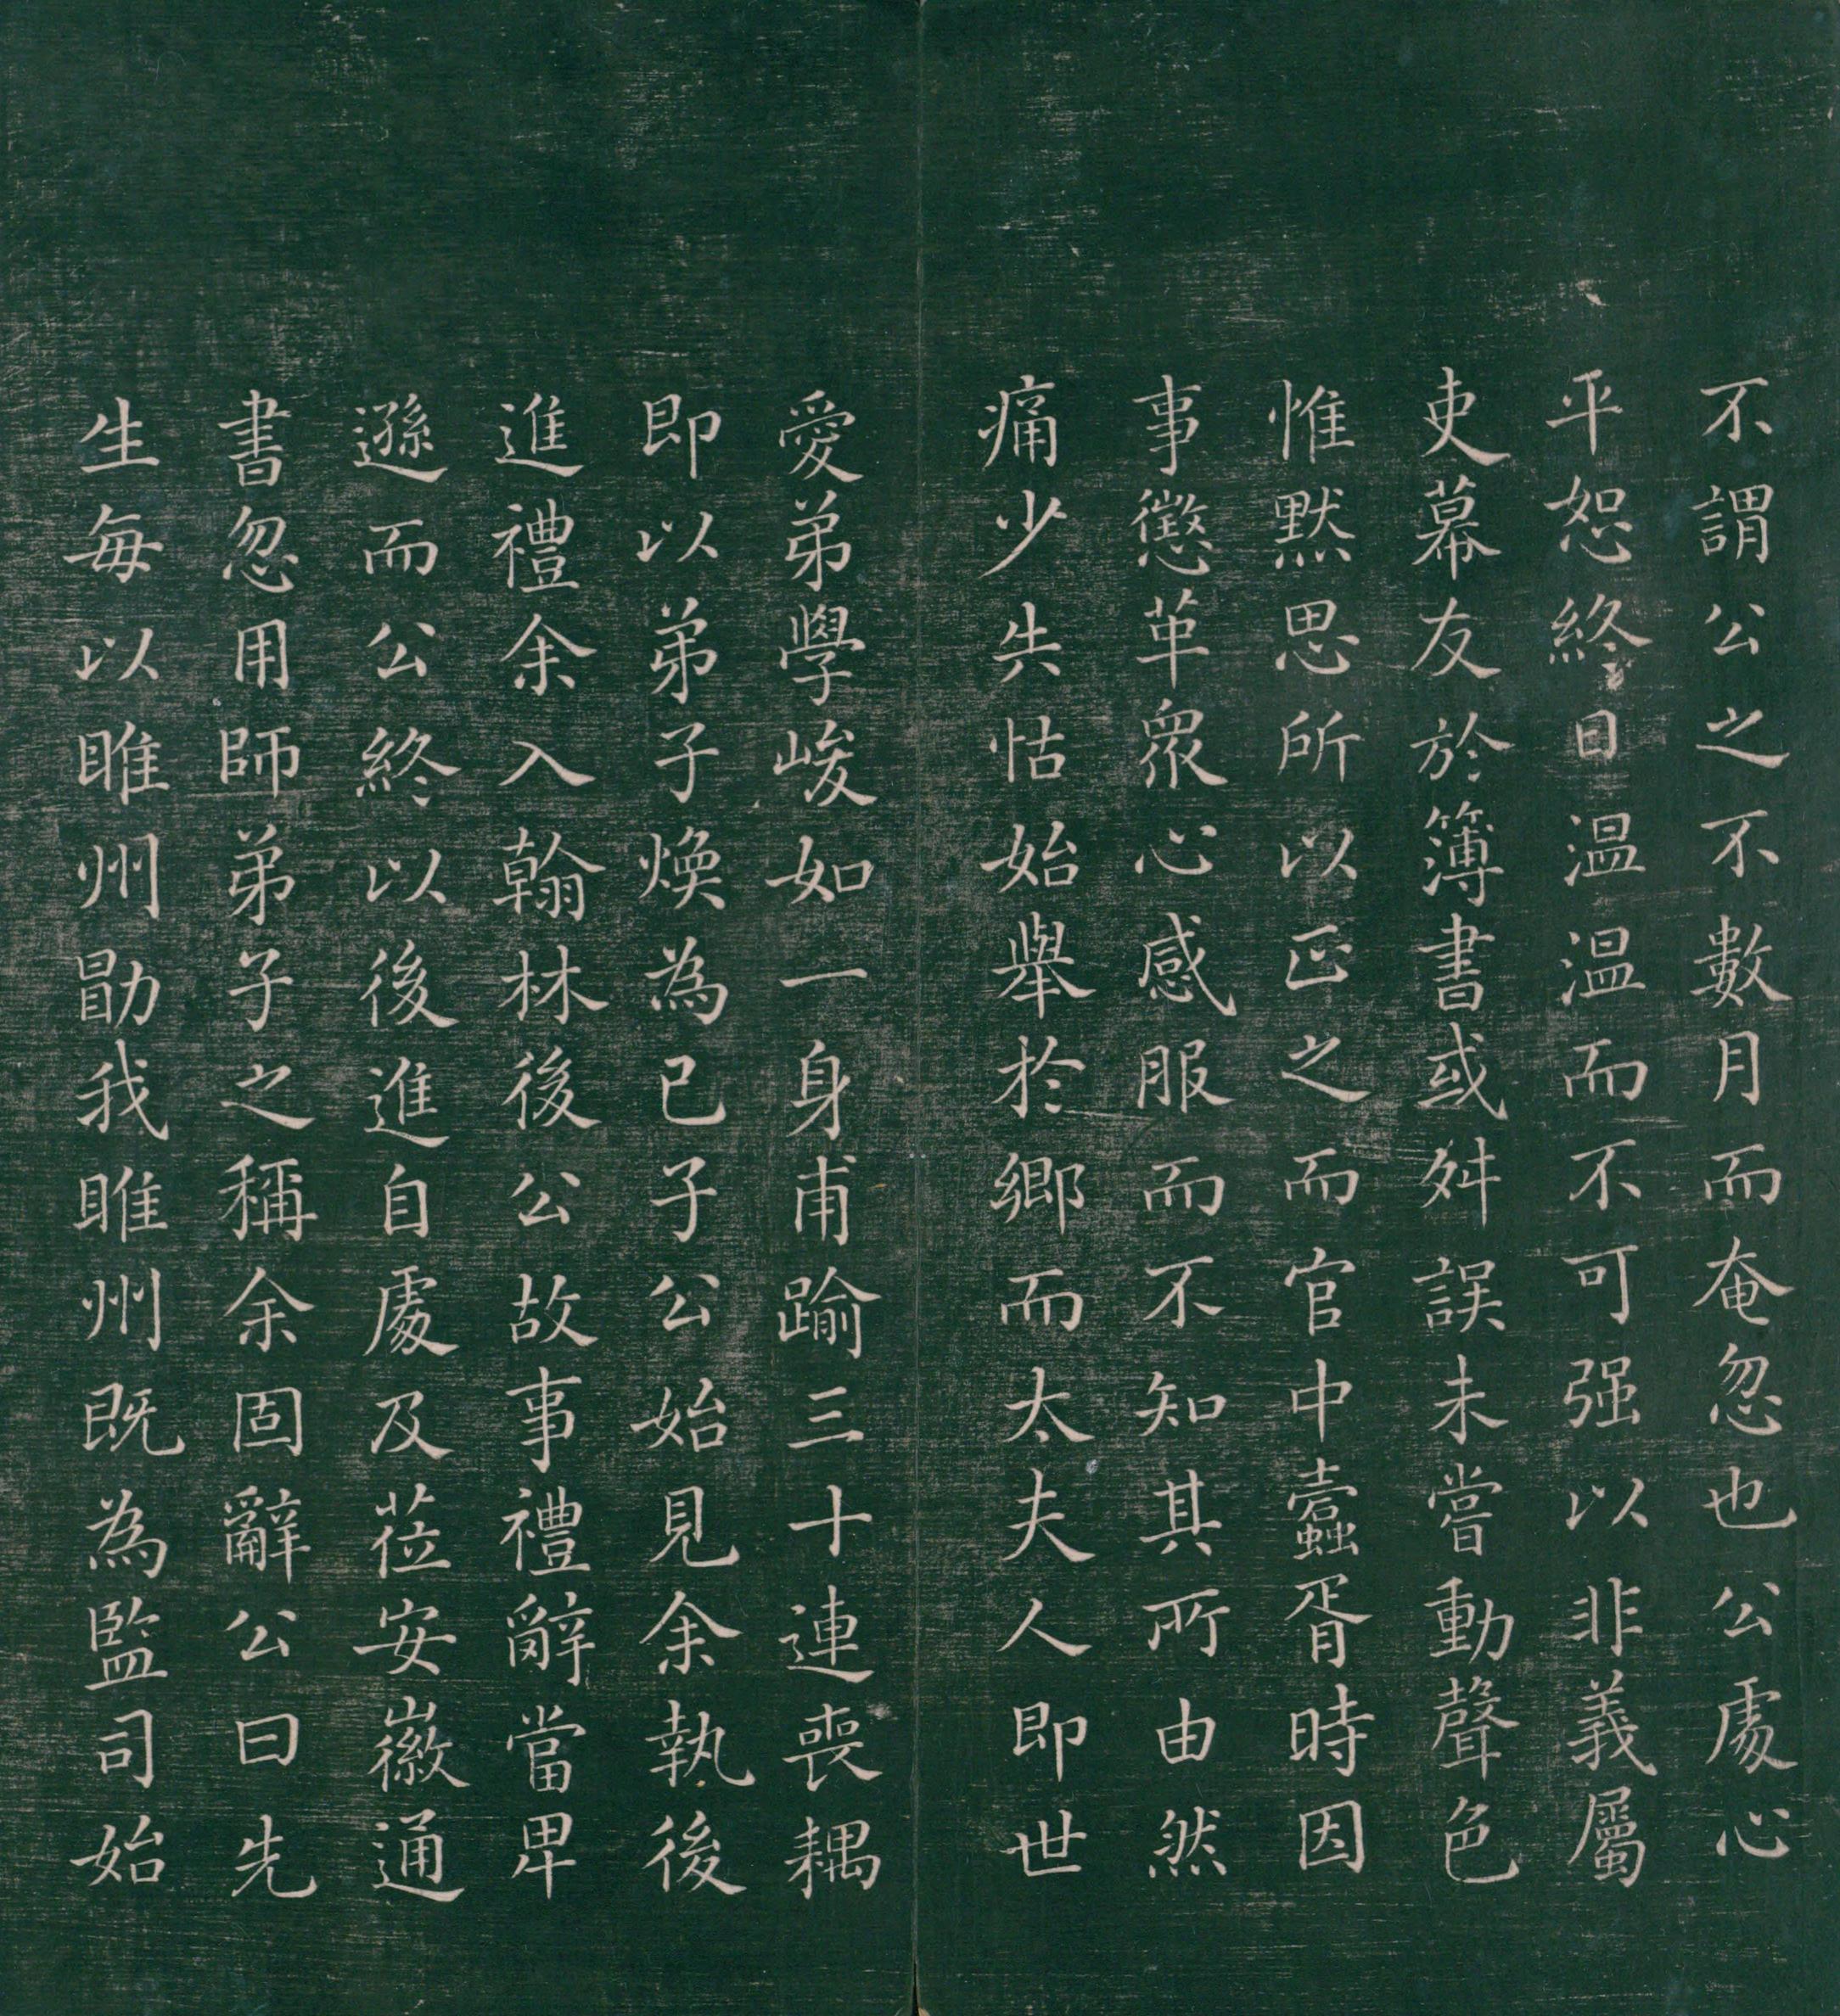 不謂公之不數月而奄忽也公處心
平恕終日温温而不可强以非義屬
吏幕友於簿書或舛誤未嘗動聲色
惟默思所以正之而官中蠹胥時因
事懲革衆心感服而不知其所由然
痛少失怙始舉於鄉而太夫人即世
愛弟學峻如一身甫踰三十連喪耦
即以弟子煥為已子公始見余執後
進禮余入翰林後公故事禮辭當卑
遜而公終以後進自處及莅安徽通
書忽用師弟子之稱余固辭公曰先
生每以睢州勖我睢州既為監司始